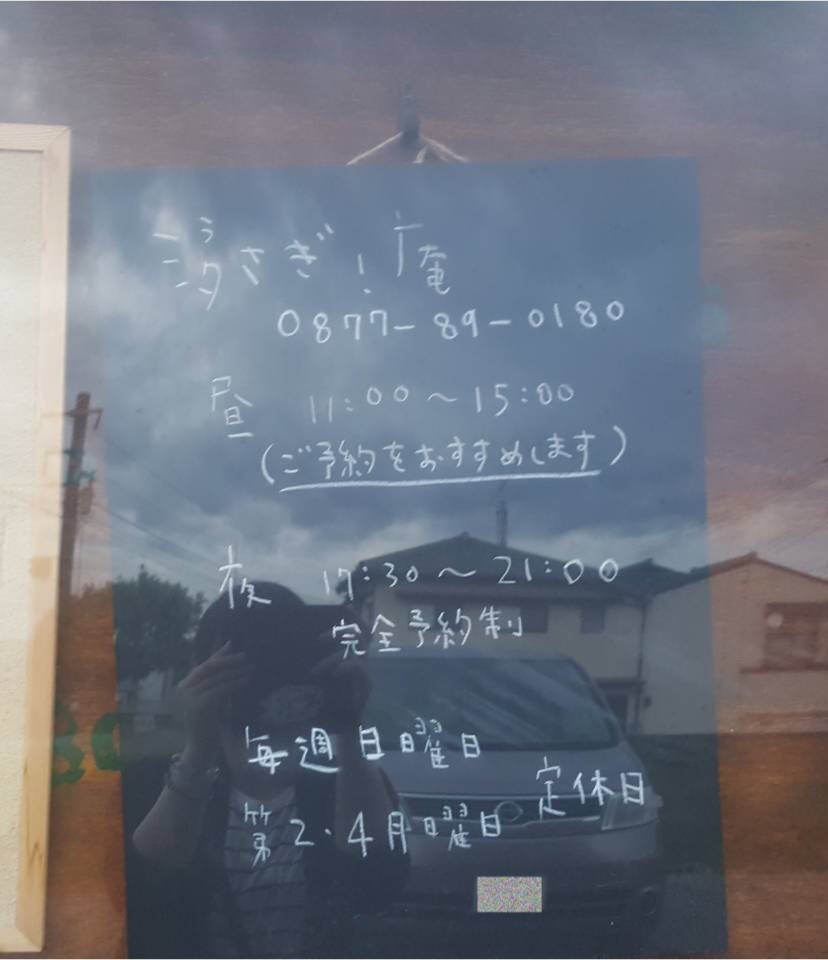 さぎ！庵
0877-89-0180
昼 11:00〜15:00
(ご予約をおすすめします)
夜 17:30〜21:00
完全予約制
毎週日曜日
第2・4月曜日 定休日